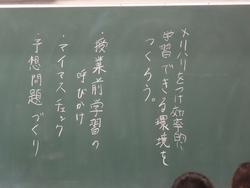 メリハリをつけ効率的に
学習できる環境を
つくろう。
・授業前学習の
呼びかけ
・マイマスチェック
・予想問題づくり